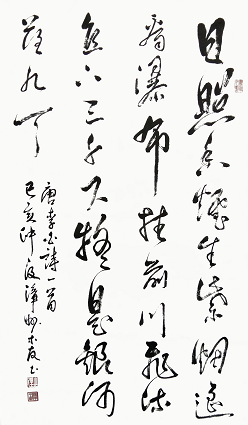 日照香爐生紫烟遥
看瀑布挂前川飛流
直下三千尺疑是銀河
落九天
唐李白詩一首
己亥仲夏